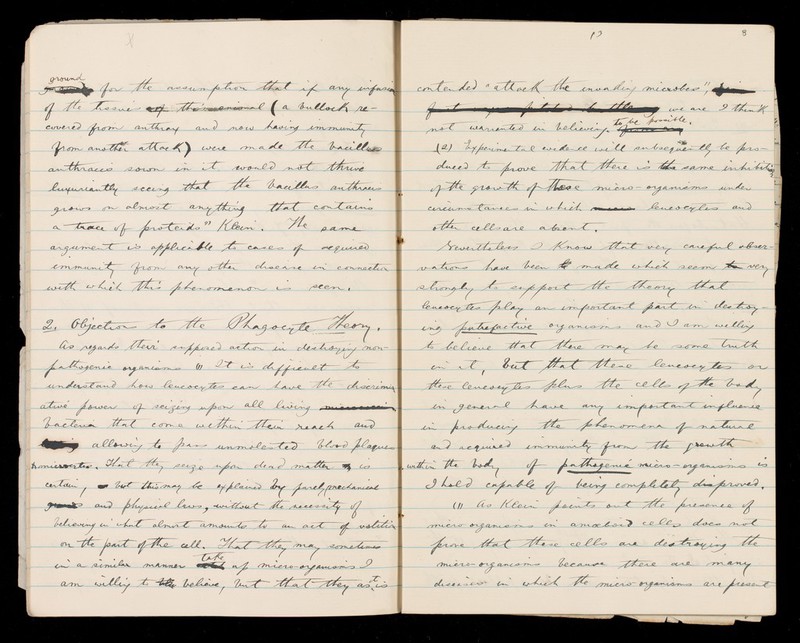 ground
for the assumption that if any infusion
of the tissue of this animal (a bullock re-
covered from anthrax and now having immunity
from another attack) were made the bacillus
anthracis sown in it would not thrive
luxuriantly seeing that the bacillus anthracis
grows on almost anything that contains
a trace of proteids" Klein. The same
argument is applicable to cases of acquired
immunity from any other disease in connection
with which this phenomenon is seen.
2. Objections to the Phagocyte Theory.
As regards their supposed action in destroying non-
pathogenic organisms (1) It is difficult to
understand how leucocytes can have the discrimin
ative power of seizing upon all living
bacteria that come within their reach and
allowing to pass unmolested blood plaques
. That they seize upon dead matter is
certain, but this may be explained by purely mechanical
and physical laws, without the necessity of
believing in what almost amounts to an act of volition
on the part of the cell. That they may sometimes
in a similar manner take up micro-organisms I
am willing to believe, but that they as it is
8
contended "attack the invading microbes",
we are I think
not warranted in believing to be possible.
(2) Experimental evidence will subsequently be pro-
duced to prove that there is the same inhibition
of the growth of these micro-organisms under
circumstances in which leucocytes and
other cells are absent.
Nevertheless I know that very careful obser-
vations have been made which seem very
strongly to support the theory that
leucocytes play an important part in destroy-
ing putrefactive organisms and I am willing
to believe that there may be some truth
in it, but that these leucocytes or
these leucocytes plus the cells of the body
in general have any important influence
in producing the phenomena of natural
and acquired immunity from the growth
within the body of pathogenic micro-organisms is
I hold capable of being completely disproved.
(1) As Klein points out the presence of
micro organisms in amœboid cells does not
prove that these cells are destroying the
micro-organisms because there are many
diseases in which the micro-organisms are present